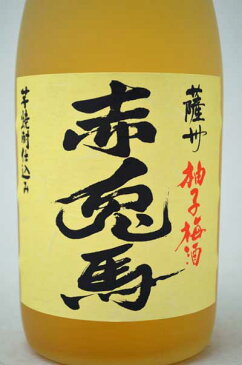 薩州
赤兎馬
柚子梅酒
芋焼酎仕込み